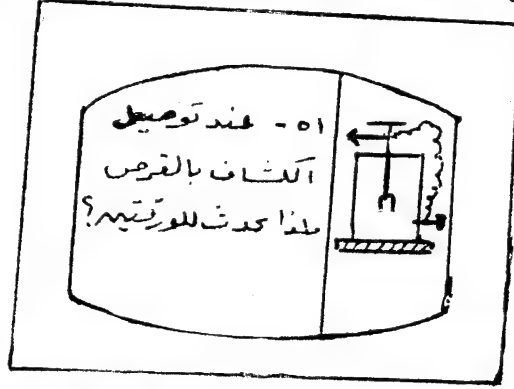 ٥١ - عند توصيل
الكشاف بالقرص
ماذا يحدث للورقتين؟